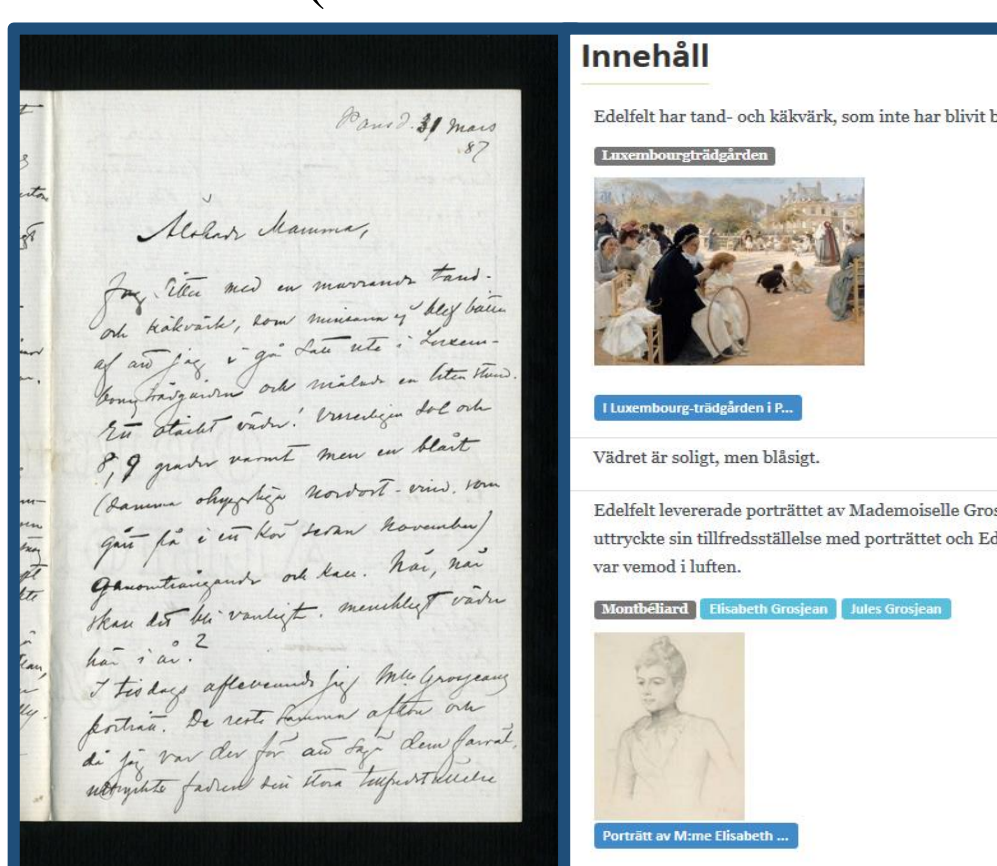 Paris d. 31 Mars
87
Älskade Mamma,
Jag sitter med en murrande tand-
och käkvärk, som minsann ej blef bättre
af att jag i går satt ute i Luxem-
bourgträdgården och målade en liten stund.
Ett otäckt väder! Visserligen sol och
8, 9 grader varmt men en blåst
(samma ohyggliga nordost-vind, som
gått på i ett kör sedan November)
genomträngande och kall. När, när
skall det bli vanligt, menskligt väder
här i år?
I tisdags aflevererade jag Mlle Grosjeans
porträtt. De reste samma afton och
då jag var der för att säga dem farväl,
uttryckte fadren sin stora tillfredsställelse
Innehåll
Edelfelt har tand- och käkvärk, som inte har blivit b
Luxembourgträdgården
I Luxembourg-trädgården i P...
Vädret är soligt, men blåsigt.
Edelfelt levererade porträttet av Mademoiselle Gros
uttryckte sin tillfredsställelse med porträttet och Ed
var vemod i luften.
Montbéliard Elisabeth Grosjean Jules Grosjean
Porträtt av M:me Elisabeth ...